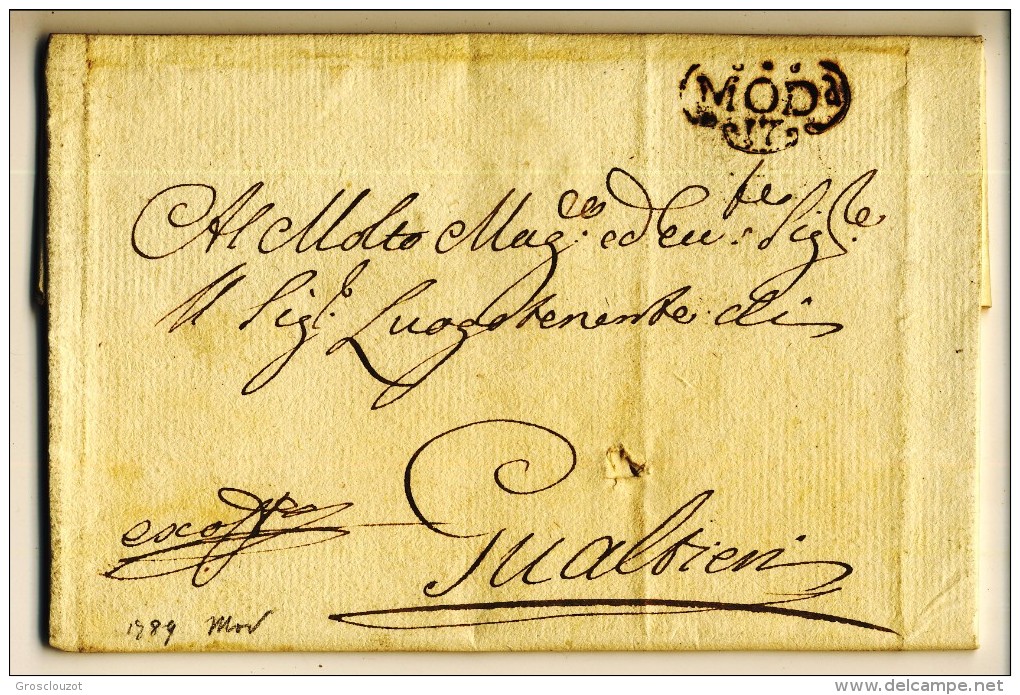 MOD.a
17
Al Molto Mag.co ed Ecc.te Sig.re
Il Sig.e Luogotenente di
Gualtieri
1789 Mod
Grosclouzot
delcampe.net